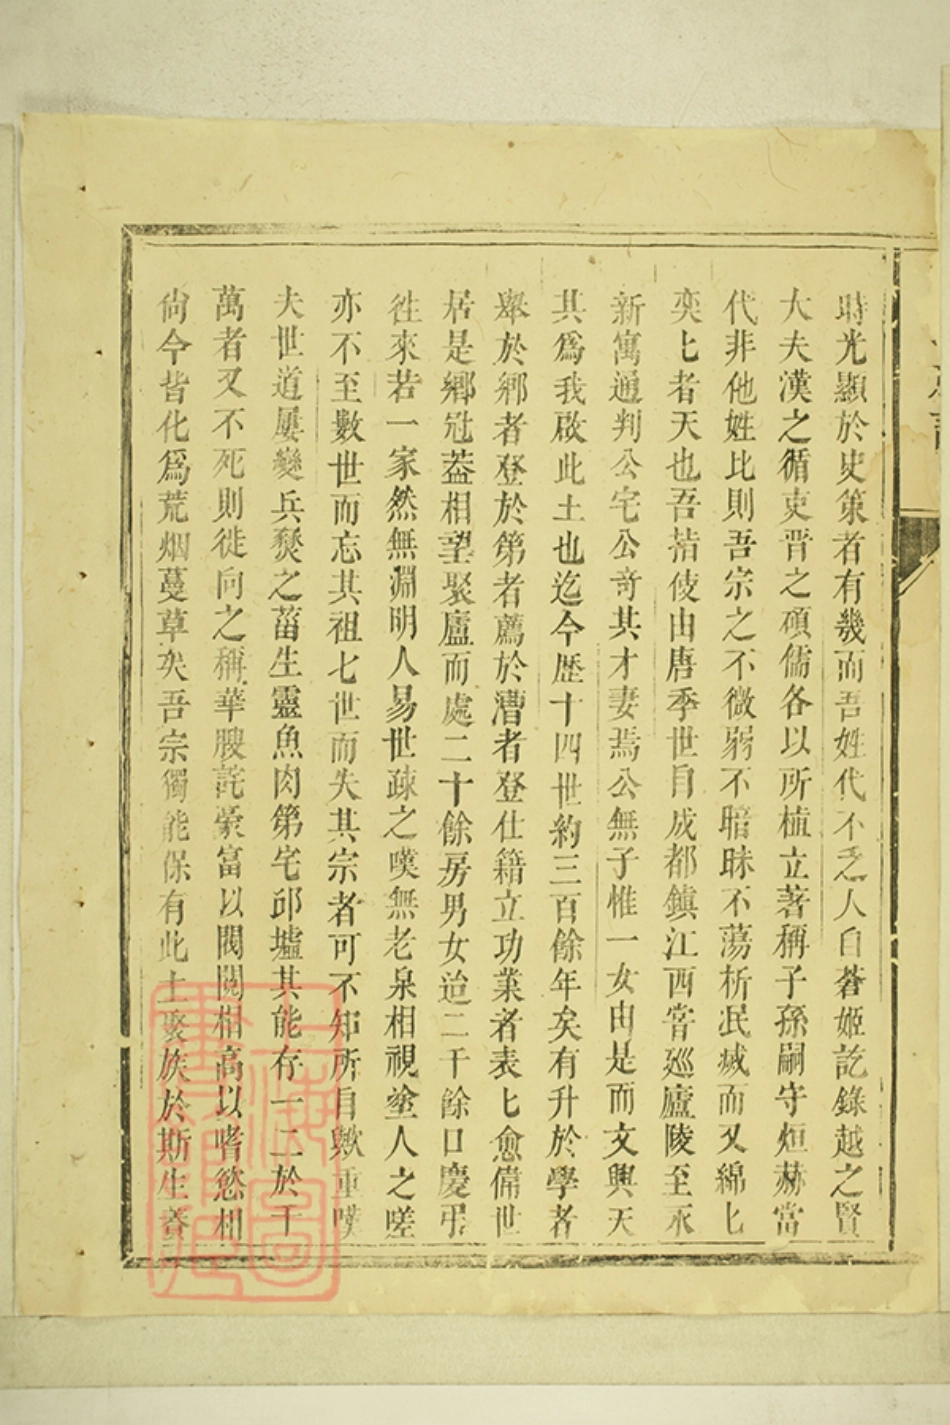 時光顯於史策者有幾而吾姓代不乏人自蒼姬訖錄越之賢
大夫漢之循吏晋之碩儒各以所植立著稱子孫嗣守烜赫當
代非他姓比則吾宗之不微弱不暗昧不蕩析泯滅而又綿匕
奕匕者天也吾祜使由唐季世自成都鎮江西嘗廵廬陵至永
新寓通判公宅公竒其才妻焉公無子惟一女由是而文興天
其爲我啟此土也迄今歷十四世約三百餘年矣有升於學者
舉於鄉者登於第者薦於漕者登仕籍立功業者表匕愈偹世
居是鄉冠葢相望聚廬而處二十餘房男女迨二千餘口慶弔
徃來若一家然無淵明人易世疎之嘆無老泉相視塗人之嗟
亦不至數世而忘其祖七世而失其宗者可不知所自歟重嘆
夫世道屢變兵燹之菑生靈魚肉第宅邱墟其能存一二於千
萬者又不死則徙向之稱華腴詫豪富以閥閱相高以嗜慾相
尙今皆化爲荒烟蔓草矣吾宗獨能保有此土聚族於斯生養
上海圖書館